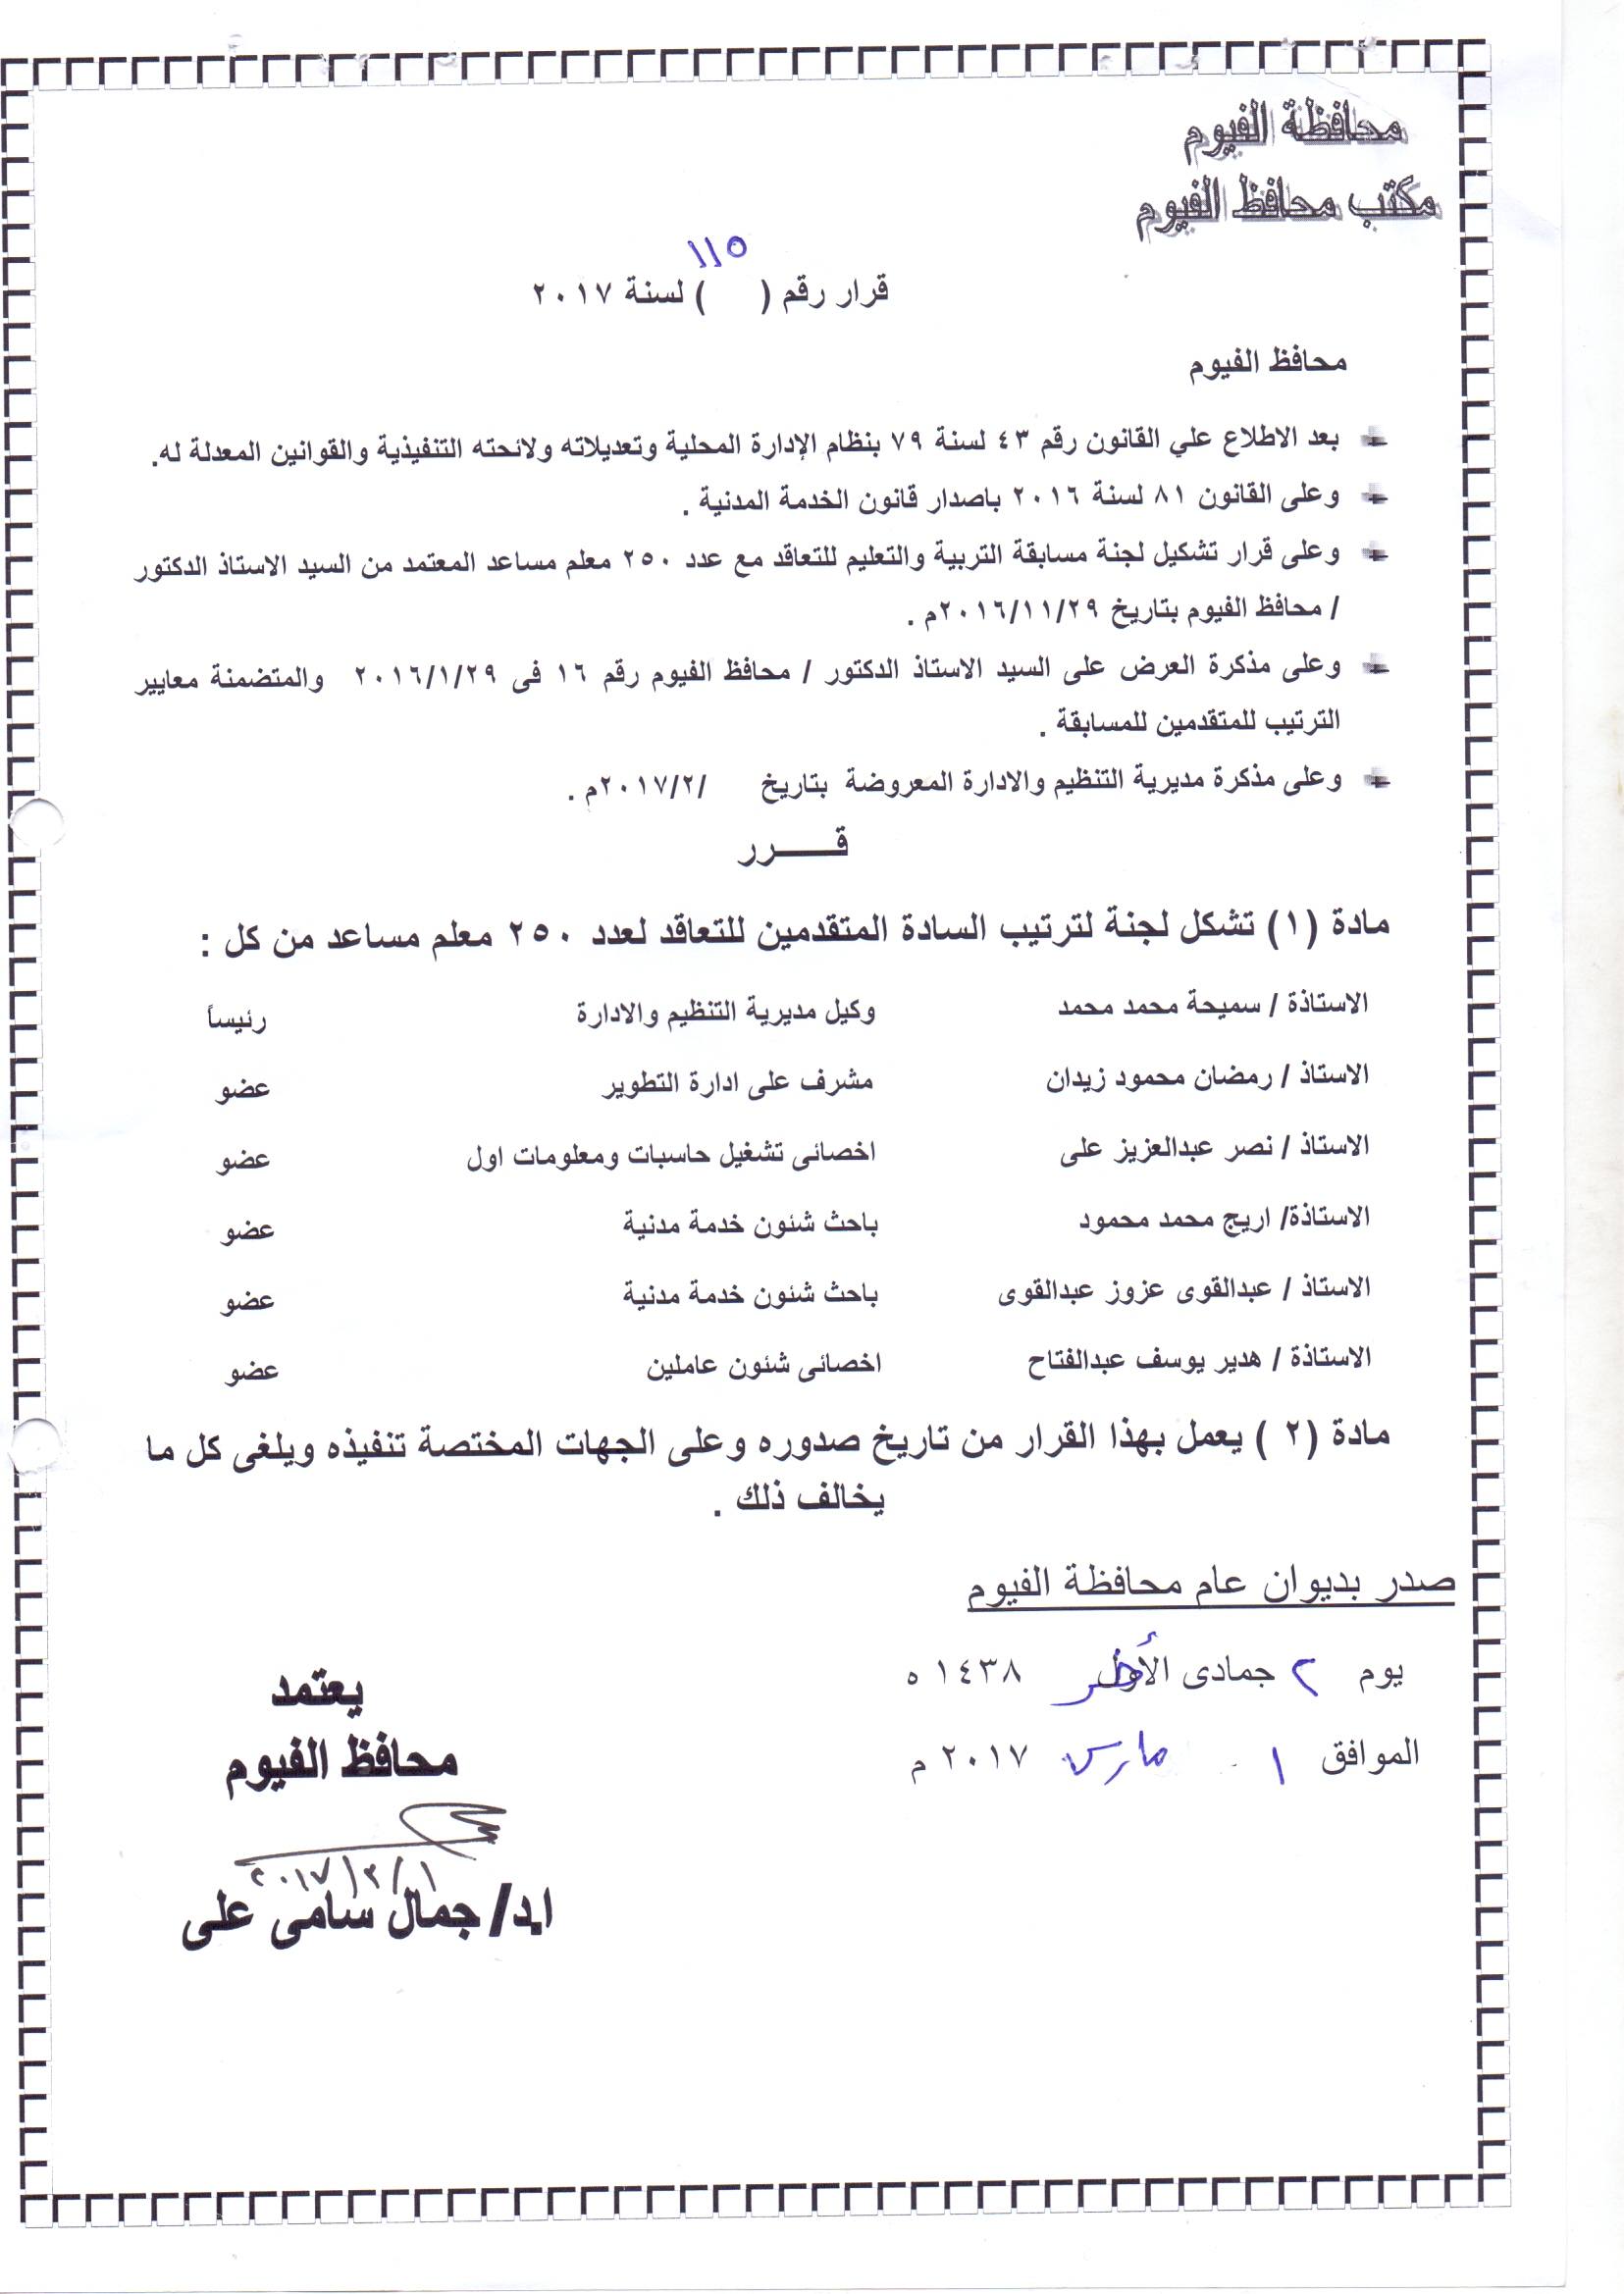 محافظة الفيوم
مكتب محافظ الفيوم
قرار رقم ( ١١٥ ) لسنة ٢٠١٧
محافظ الفيوم
بعد الاطلاع علي القانون رقم ٤٣ لسنة ٧٩ بنظام الإدارة المحلية وتعديلاته ولائحته التنفيذية والقوانين المعدلة له.
وعلى القانون ٨١ لسنة ٢٠١٦ باصدار قانون الخدمة المدنية .
وعلى قرار تشكيل لجنة مسابقة التربية والتعليم للتعاقد مع عدد ٢٥٠ معلم مساعد المعتمد من السيد الاستاذ الدكتور
/ محافظ الفيوم بتاريخ ٢٠١٦/١١/٢٩م .
وعلى مذكرة العرض على السيد الاستاذ الدكتور / محافظ الفيوم رقم ١٦ فى ٢٠١٦/١/٢٩ والمتضمنة معايير
الترتيب للمتقدمين للمسابقة .
وعلى مذكرة مديرية التنظيم والادارة المعروضة بتاريخ /٢٠١٧/٢م .
قـــــرر
مادة (١) تشكل لجنة لترتيب السادة المتقدمين للتعاقد لعدد ٢٥٠ معلم مساعد من كل :
الاستاذة / سميحة محمد محمد وكيل مديرية التنظيم والادارة رئيساً
الاستاذ / رمضان محمود زيدان مشرف على ادارة التطوير عضو
الاستاذ / نصر عبدالعزيز على اخصائى تشغيل حاسبات ومعلومات اول عضو
الاستاذة/ اريج محمد محمود باحث شئون خدمة مدنية عضو
الاستاذ / عبدالقوى عزوز عبدالقوى باحث شئون خدمة مدنية عضو
الاستاذة / هدير يوسف عبدالفتاح اخصائى شئون عاملين عضو
مادة (٢ ) يعمل بهذا القرار من تاريخ صدوره وعلى الجهات المختصة تنفيذه ويلغى كل ما
يخالف ذلك .
صدر بديوان عام محافظة الفيوم
يوم ٢ جمادى الأخر ١٤٣٨ ه
الموافق ١ مارس ٢٠١٧ م
يعتمد
محافظ الفيوم
٢٠١٧/٣/١
ا.د/ جمال سامى على